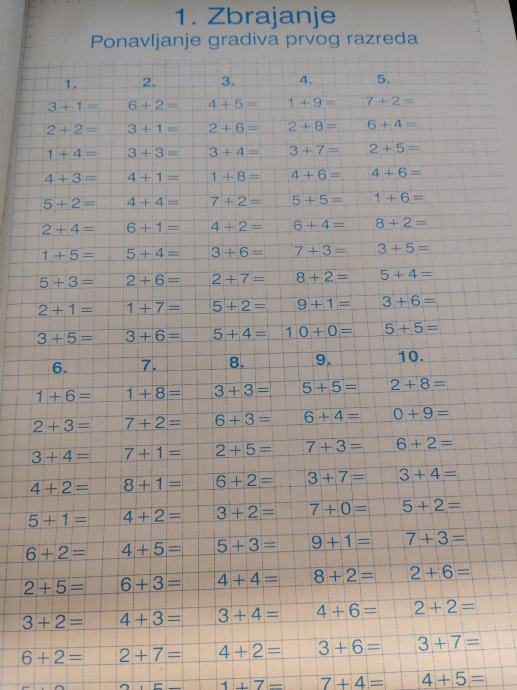 1. Zbrajanje
Ponavljanje gradiva prvog razreda
1. 2. 3. 4. 5.
3+1= 6+2= 4+5= 1+9= 7+2=
2+2= 3+1= 2+6= 2+8= 6+4=
1+4= 3+3= 3+4= 3+7= 2+5=
4+3= 4+1= 1+8= 4+6= 4+6=
5+2= 4+4= 7+2= 5+5= 1+6=
2+4= 6+1= 4+2= 6+4= 8+2=
1+5= 5+4= 3+6= 7+3= 3+5=
5+3= 2+6= 2+7= 8+2= 5+4=
2+1= 1+7= 5+2= 9+1= 3+6=
3+5= 3+6= 5+4= 10+0= 5+5=
6. 7. 8. 9. 10.
1+6= 1+8= 3+3= 5+5= 2+8=
2+3= 7+2= 6+3= 6+4= 0+9=
3+4= 7+1= 2+5= 7+3= 6+2=
4+2= 8+1= 6+2= 3+7= 3+4=
5+1= 4+2= 3+2= 7+0= 5+2=
6+2= 4+5= 5+3= 9+1= 7+3=
2+5= 6+3= 4+4= 8+2= 2+6=
3+2= 4+3= 3+4= 4+6= 2+2=
6+2= 2+7= 4+2= 3+6= 3+7=
1+7= 7+4= 4+5=